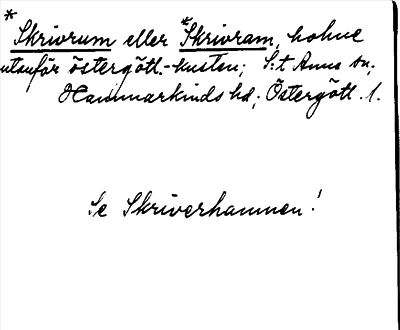 *Skrivrum eller *Skrivram, holme
utanför östergötl.-kusten; S:t Anna sn;
Hammarkinds hd; Östergötl. l.
Se Skriverhamnen!